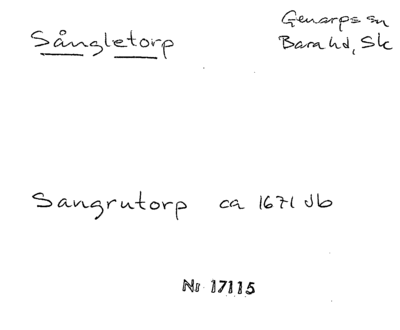 Sångletorp
Genarps sn
Bara hd, Sk
Sangrutorp ca 1671 Jb
Nr 17115